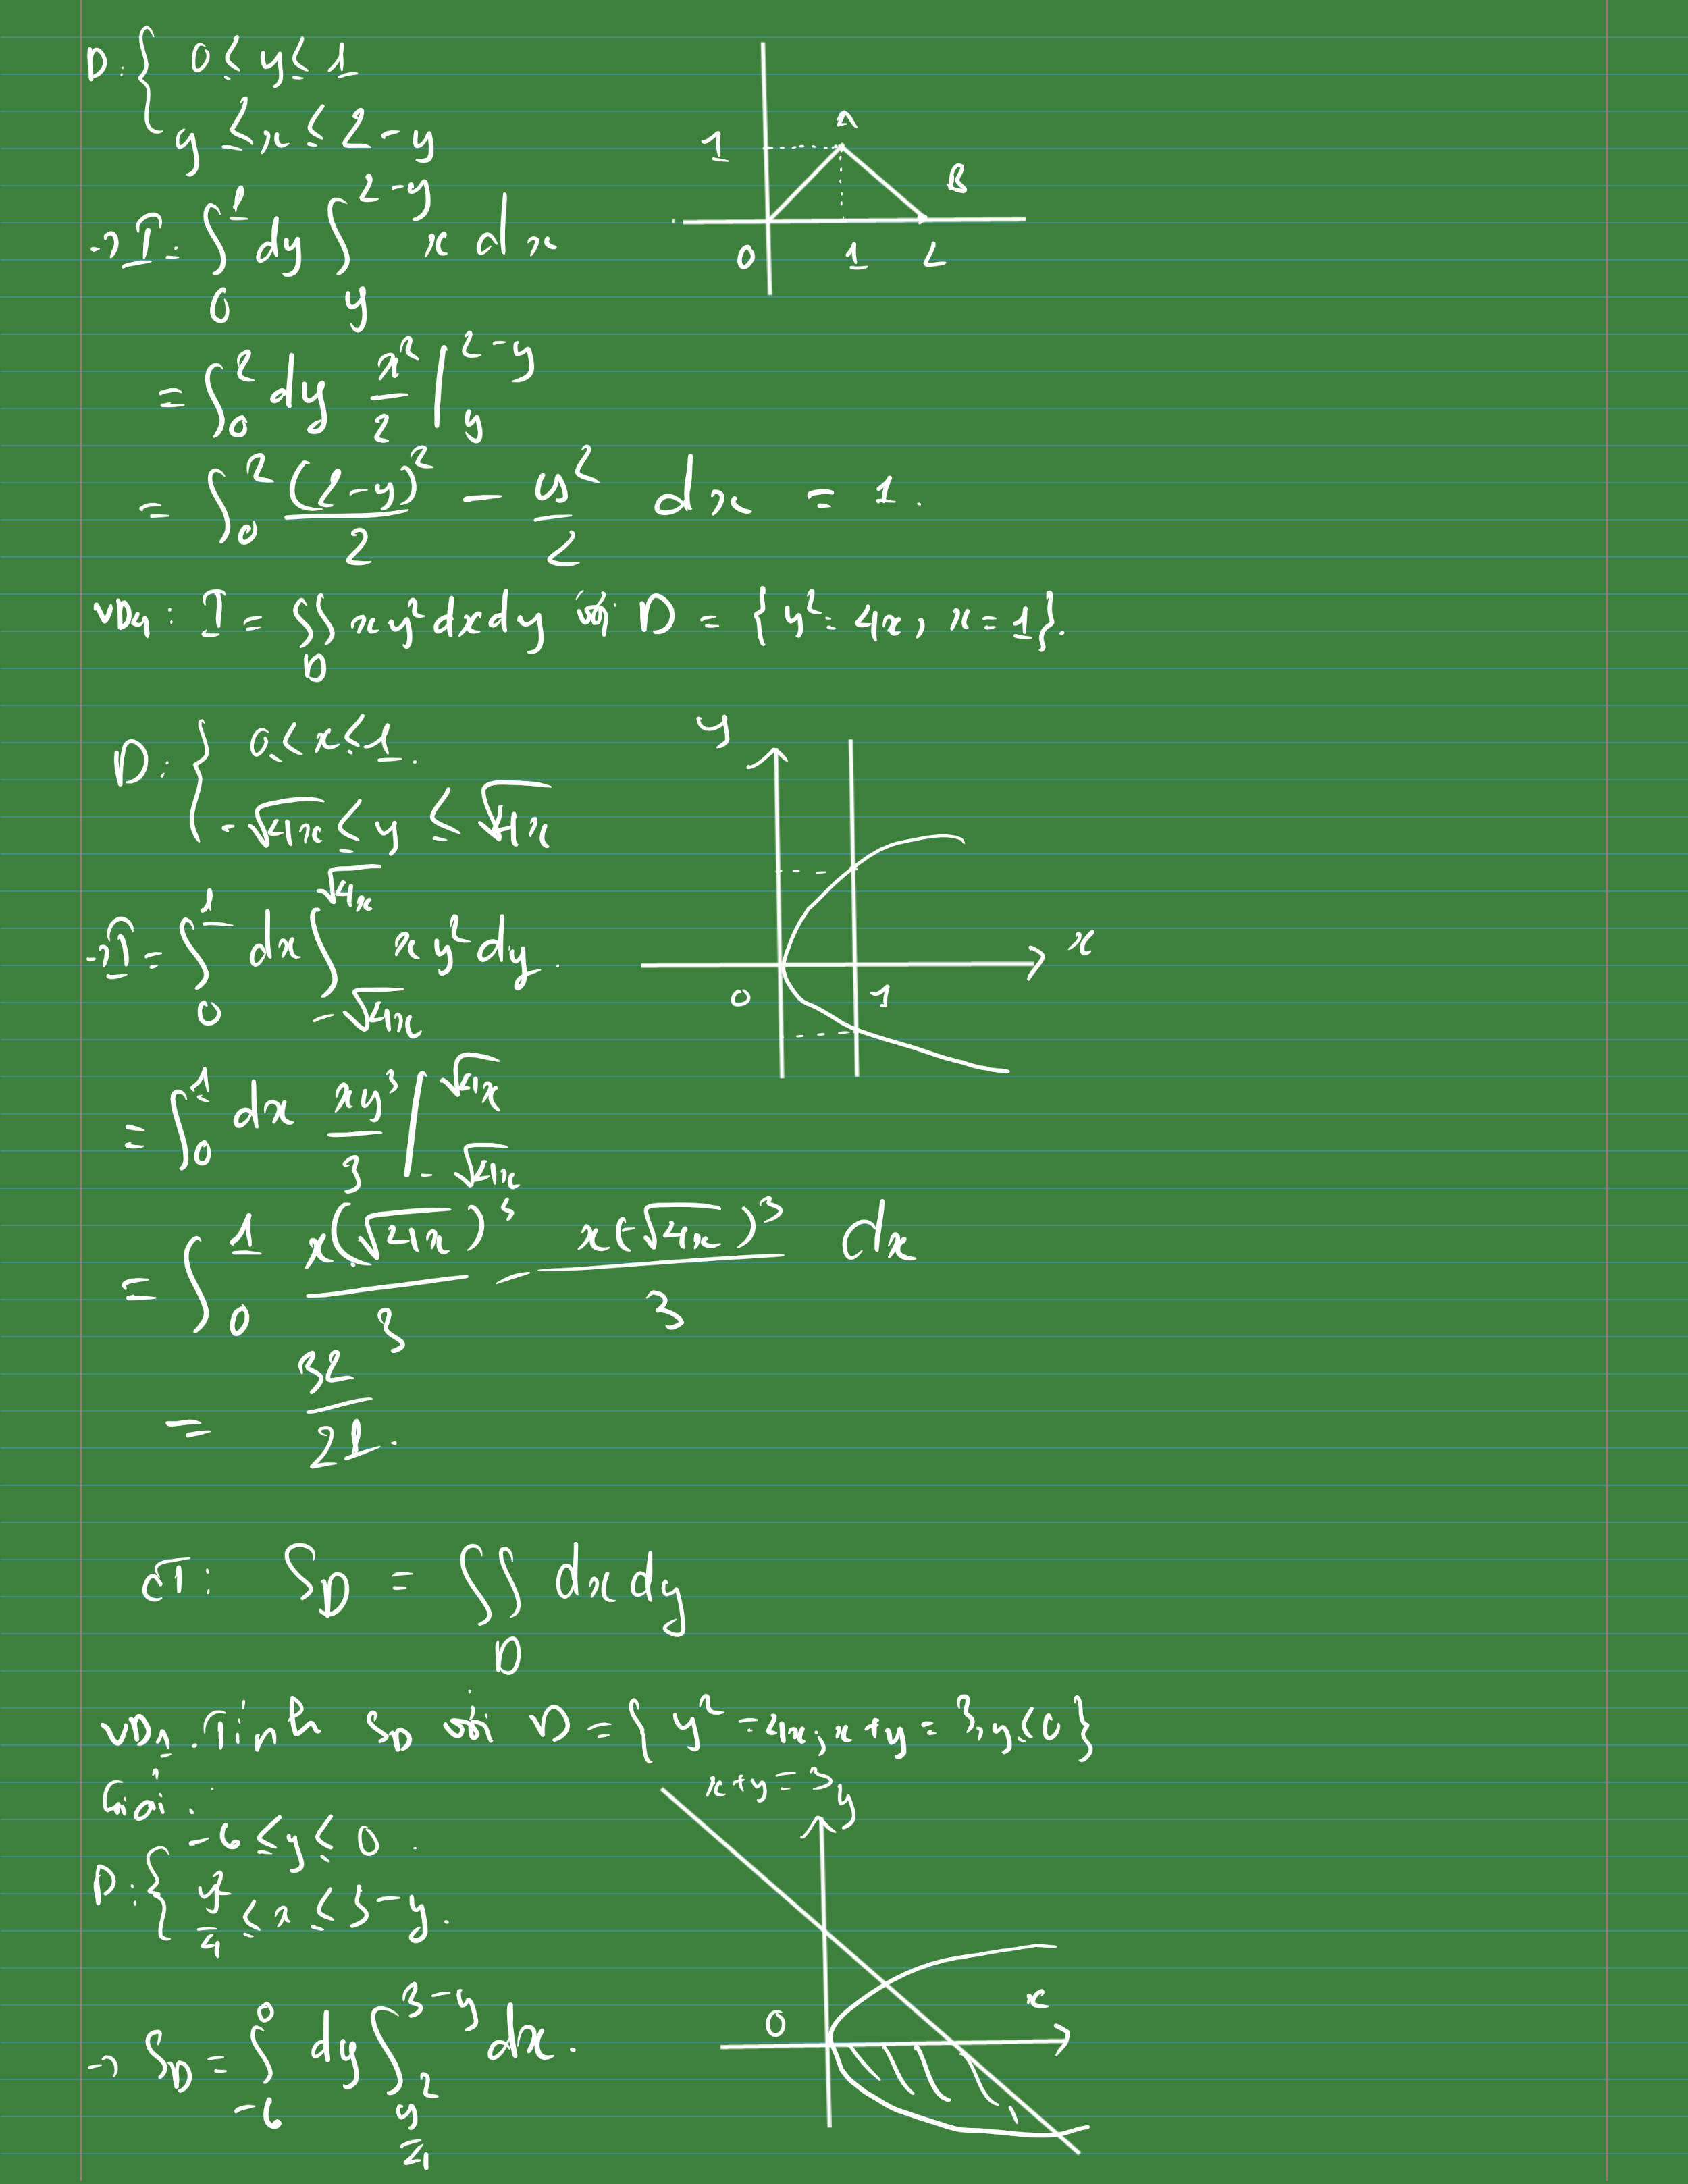 D: { 0 ≤ y ≤ 1
y ≤ x ≤ 2 - y
→ I = ∫₀¹ dy ∫_y^{2-y} x dx
= ∫₀² dy x²/2 |_y^{2-y}
= ∫₀² (2-y)²/2 - y²/2 dx = 1.
1 A B
0 1 2
VD4: I = ∬_D xy² dxdy với D = { y² = 4x, x = 1 }.
D: { 0 ≤ x ≤ 1.
-√4x ≤ y ≤ √4x
→ I = ∫₀¹ dx ∫_{-√4x}^{√4x} xy² dy.
= ∫₀¹ dx xy³/3 |_{-√4x}^{√4x}
= ∫₀¹ x(√4x)³/3 - x(-√4x)³/3 dx
= 32/21.
y
x
0 1
CT: S_D = ∬_D dxdy
VD1. Tính S_D với D = { y² = 4x, x + y = 3, y ≤ 0 }
Giải:
D: { -6 ≤ y ≤ 0.
y²/4 ≤ x ≤ 3 - y.
→ S_D = ∫_{-6}^0 dy ∫_{y²/4}^{3-y} dx.
x + y = 3
y
0 x